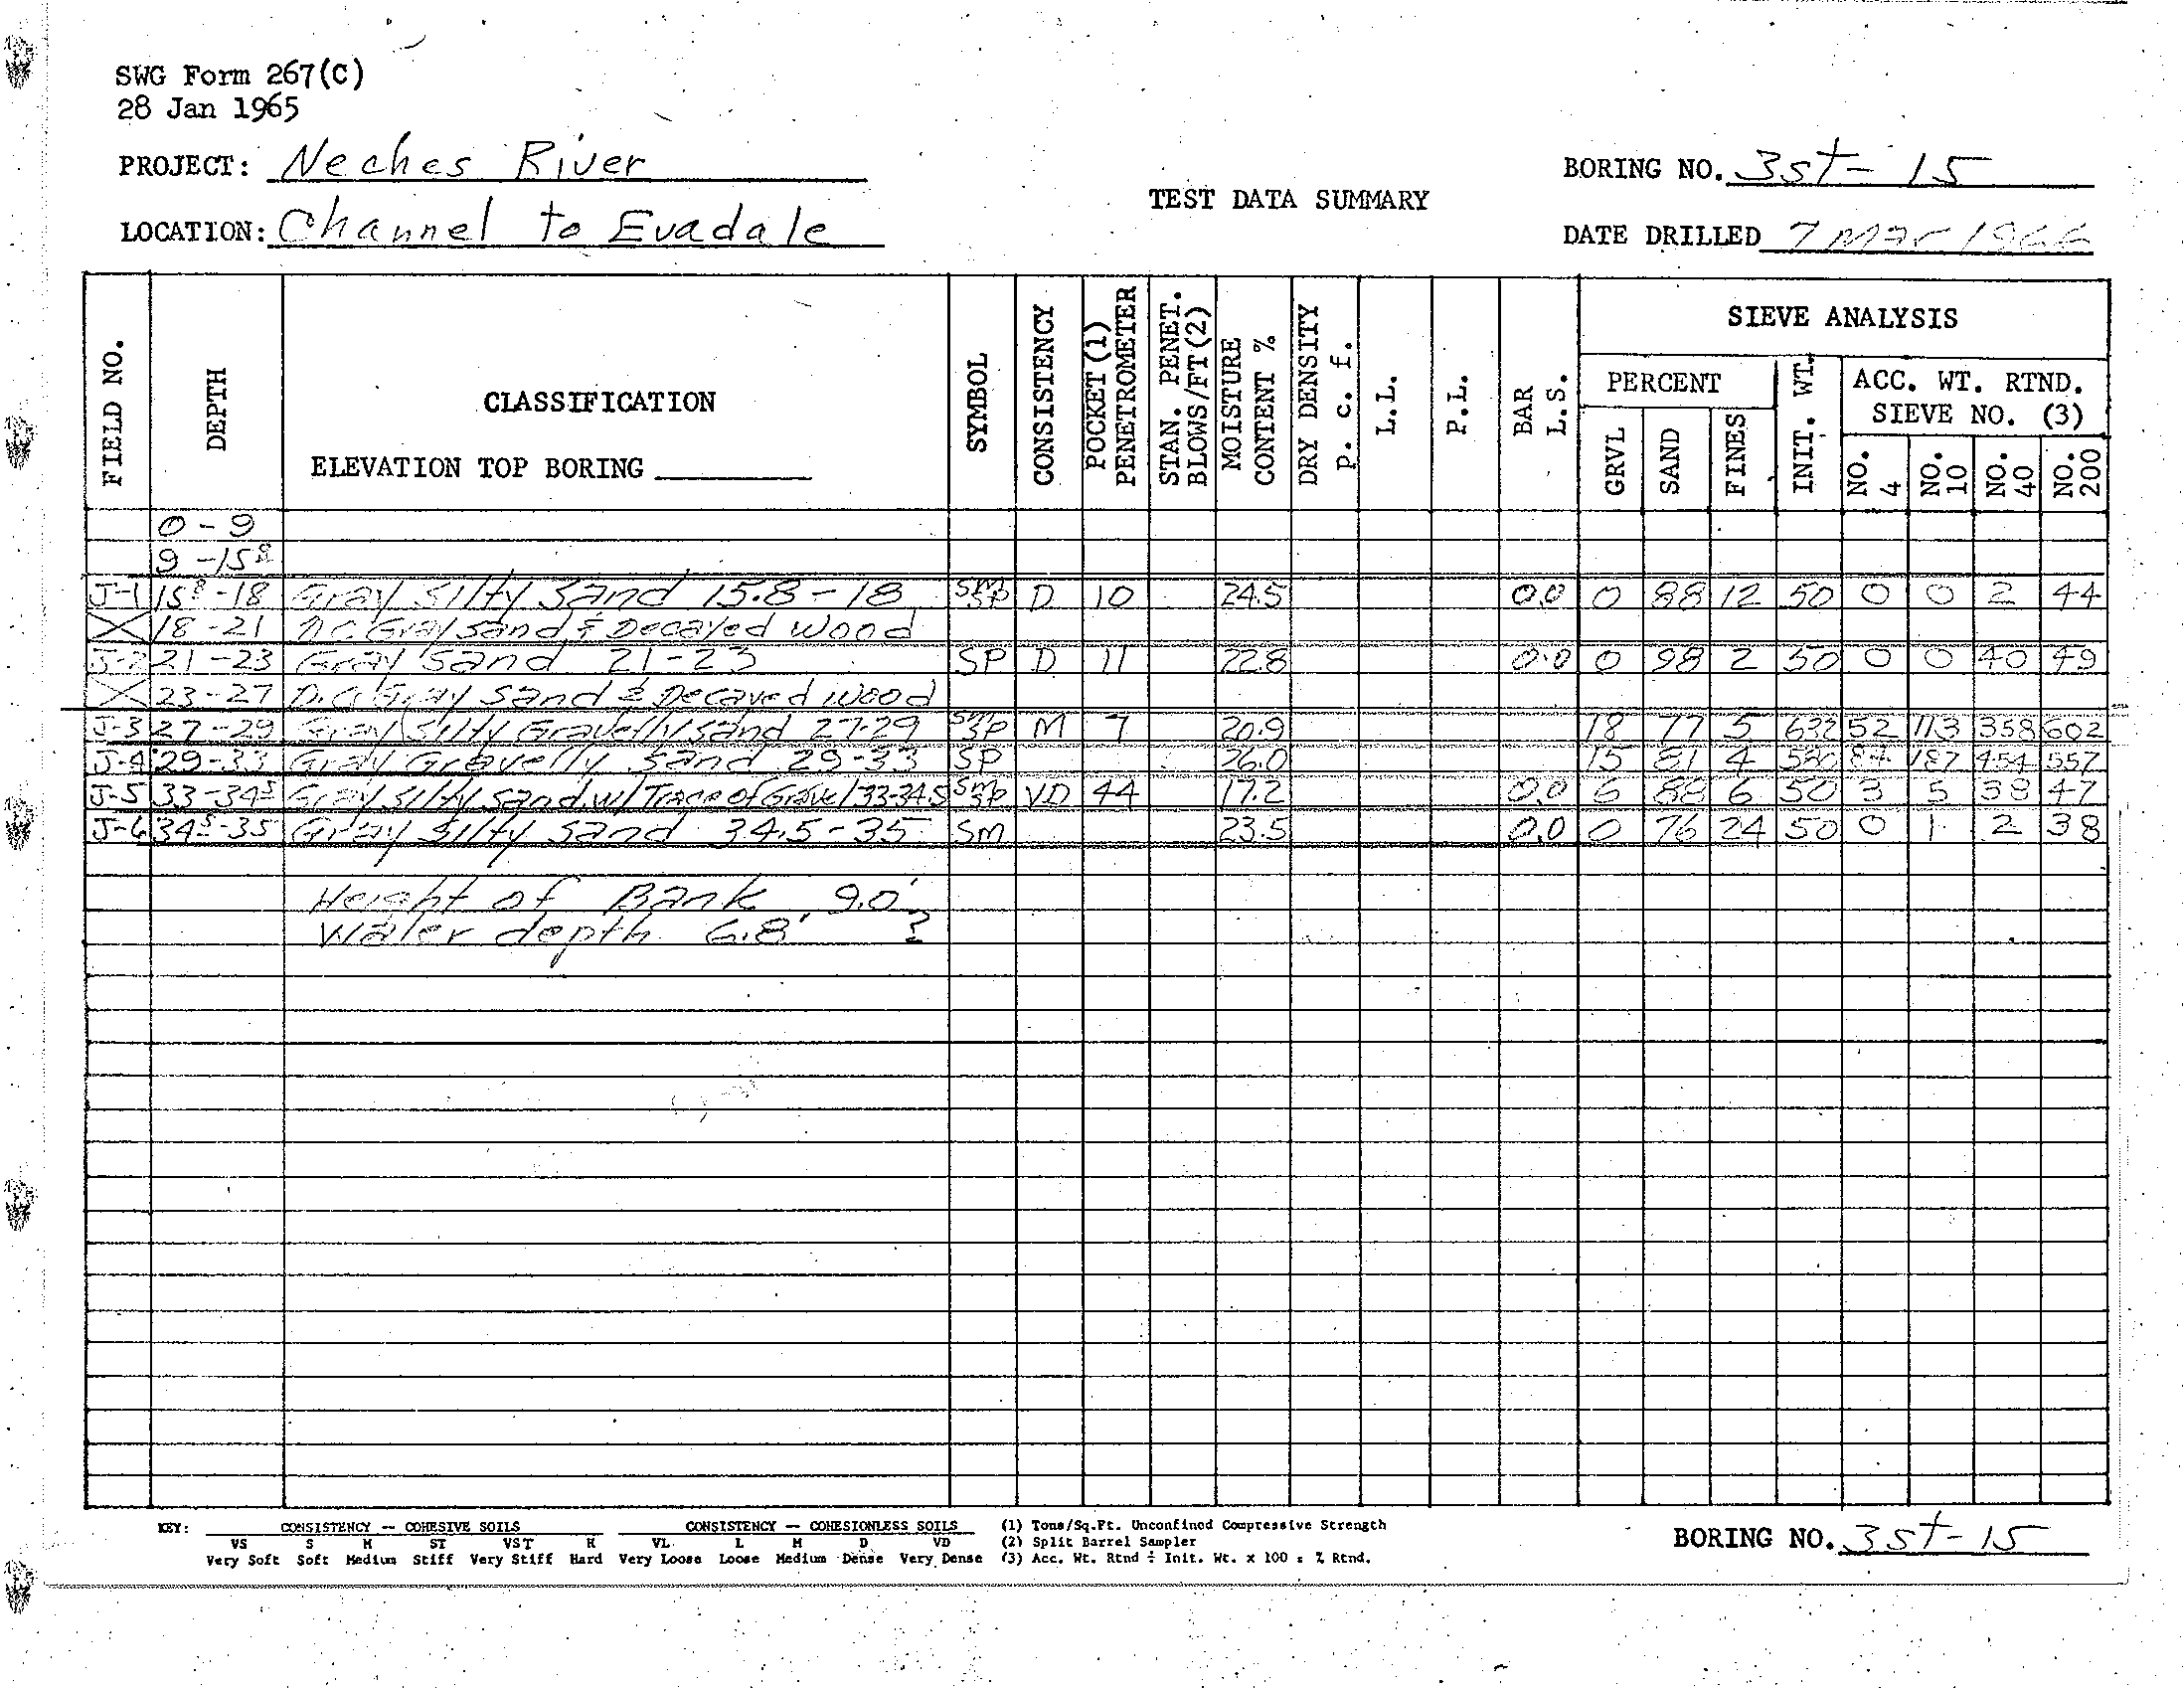 SWG Form 267(C)
28 Jan 1965
PROJECT: Neches River
LOCATION: Channel to Evadale
TEST DATA SUMMARY
BORING NO. 3st-15
DATE DRILLED 7 Mar 1966
FIELD NO. DEPTH CLASSIFICATION SYMBOL CONSISTENCY POCKET (1) PENETROMETER STAN. PENET. BLOWS/FT(2) MOISTURE CONTENT % DRY DENSITY p. c. f. L.L. P.L. BAR L.S. SIEVE ANALYSIS
ELEVATION TOP BORING
PERCENT INIT. WT. ACC. WT. RTND. SIEVE NO. (3)
GRVL SAND FINES NO. 4 NO. 10 NO. 40 NO. 200
0-9
9-15⁸
J-1 15⁸-18 Gray Silty Sand 15.8-18 D 10 24.5 0.0 0 88 12 50 0 0 2 44
18-21 D.C. Gray sand & Decayed Wood
J-2 21-23 Gray Sand 21-23 SP D 11 22.8 0.0 0 98 2 50 0 0 40 49
23-27 D.C. Gray Sand & Decayed Wood
J-3 27-29 Gray Silty Gravelly sand 27-29 M 7 20.9 18 77 5 632 52 113 358 602
J-4 29-33 Gray Gravelly Sand 29-33 SP 26.0 15 81 4 580 84 187 454 557
J-5 33-34⁵ Gray Silty Sand w/ Trace of Gravel 33-34.5 VD 44 17.2 0.0 6 88 6 50 3 5 38 47
J-6 34⁵-35 Gray Silty Sand 34.5-35 SM 23.5 0.0 0 76 24 50 0 1 2 38
Height of Bank 9.0'
Water depth 6.8' ?
KEY: CONSISTENCY -- COHESIVE SOILS CONSISTENCY -- COHESIONLESS SOILS (1) Tons/Sq.Ft. Unconfined Compressive Strength
VS S M ST VST H VL L M D VD (2) Split Barrel Sampler
Very Soft Soft Medium Stiff Very Stiff Hard Very Loose Loose Medium Dense Very Dense (3) Acc. Wt. Rtnd ÷ Init. Wt. x 100 = % Rtnd.
BORING NO. 3st-15